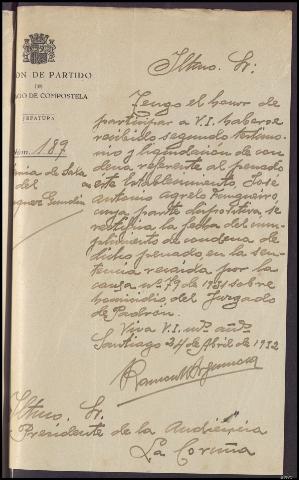 Iltmo. Sr.:
ON DE PARTIDO
DE
AGO DE COMPOSTELA
JEFATURA
Núm. 189
Tengo el honor de
participar a V.I. haberse
recibido segundo testimo-
nio y liquidación de con-
dena referente al penado
en este Establecimiento, José
Antonio Agrelo
cuya parte dispositiva, se
rectifica la fecha del cum-
plimiento de condena de
dicho penado, en la sen-
tencia recaida por la
causa nº 79 de 1931 sobre
homicidio, del Juzgado
de Padrón.
de Sala
del
Viva V.I. mº añº
Santiago 24 de Abril de 1932
Iltmo. Sr.
Presidente de la Audiencia
La Coruña